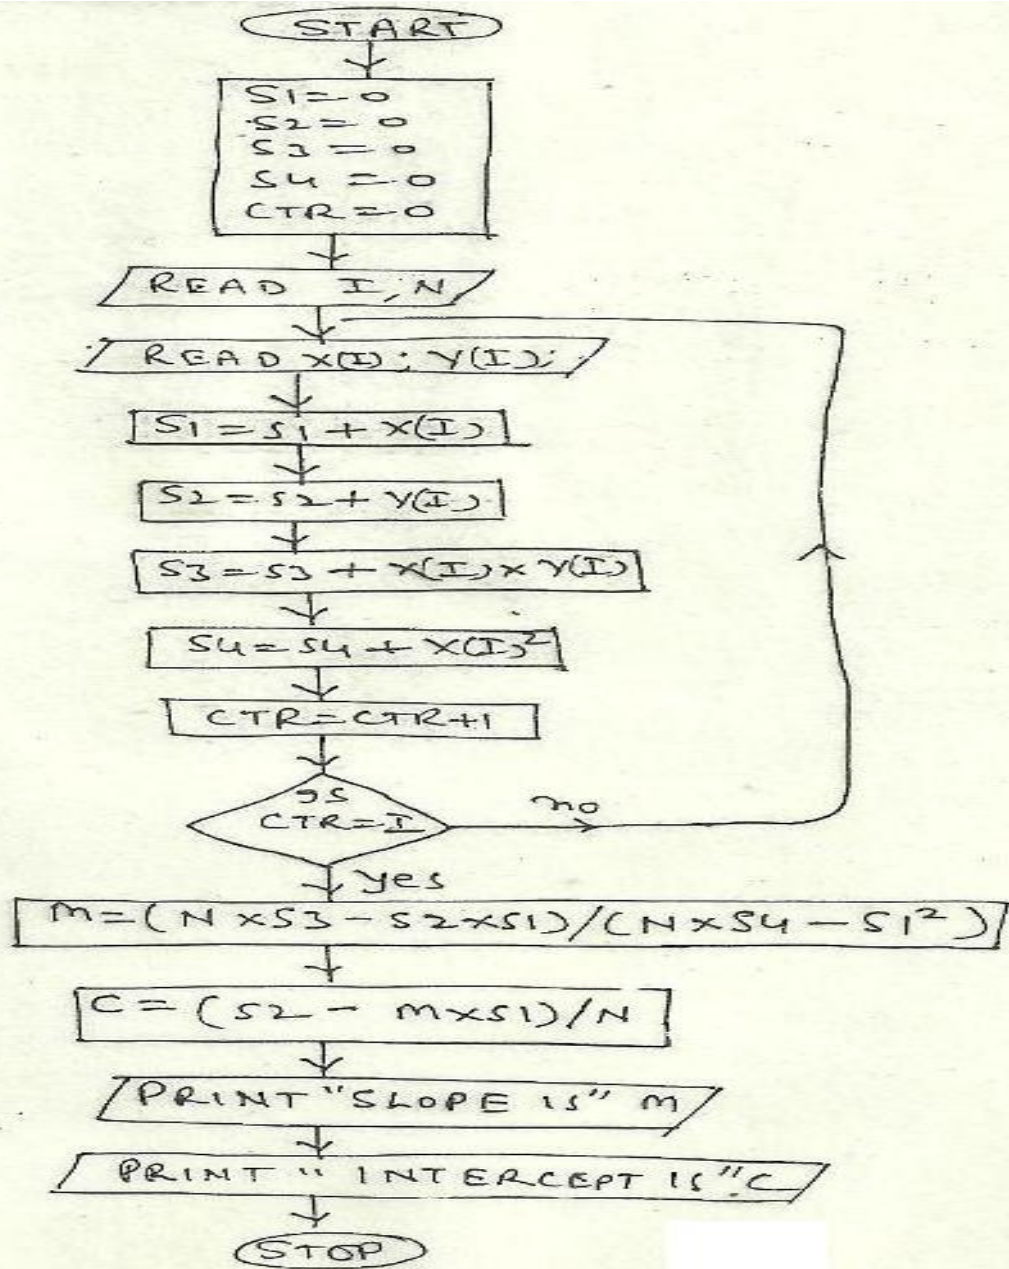 START
S1=0
S2=0
S3=0
S4=0
CTR=0
READ I, N
READ X(I); Y(I);
S1=S1+X(I)
S2=S2+Y(I)
S3=S3+X(I)×Y(I)
S4=S4+X(I)²
CTR=CTR+1
IS
CTR=I
no
yes
M=(N×S3-S2×S1)/(N×S4-S1²)
C=(S2-M×S1)/N
PRINT "SLOPE IS" M
PRINT "INTERCEPT IS" C
STOP